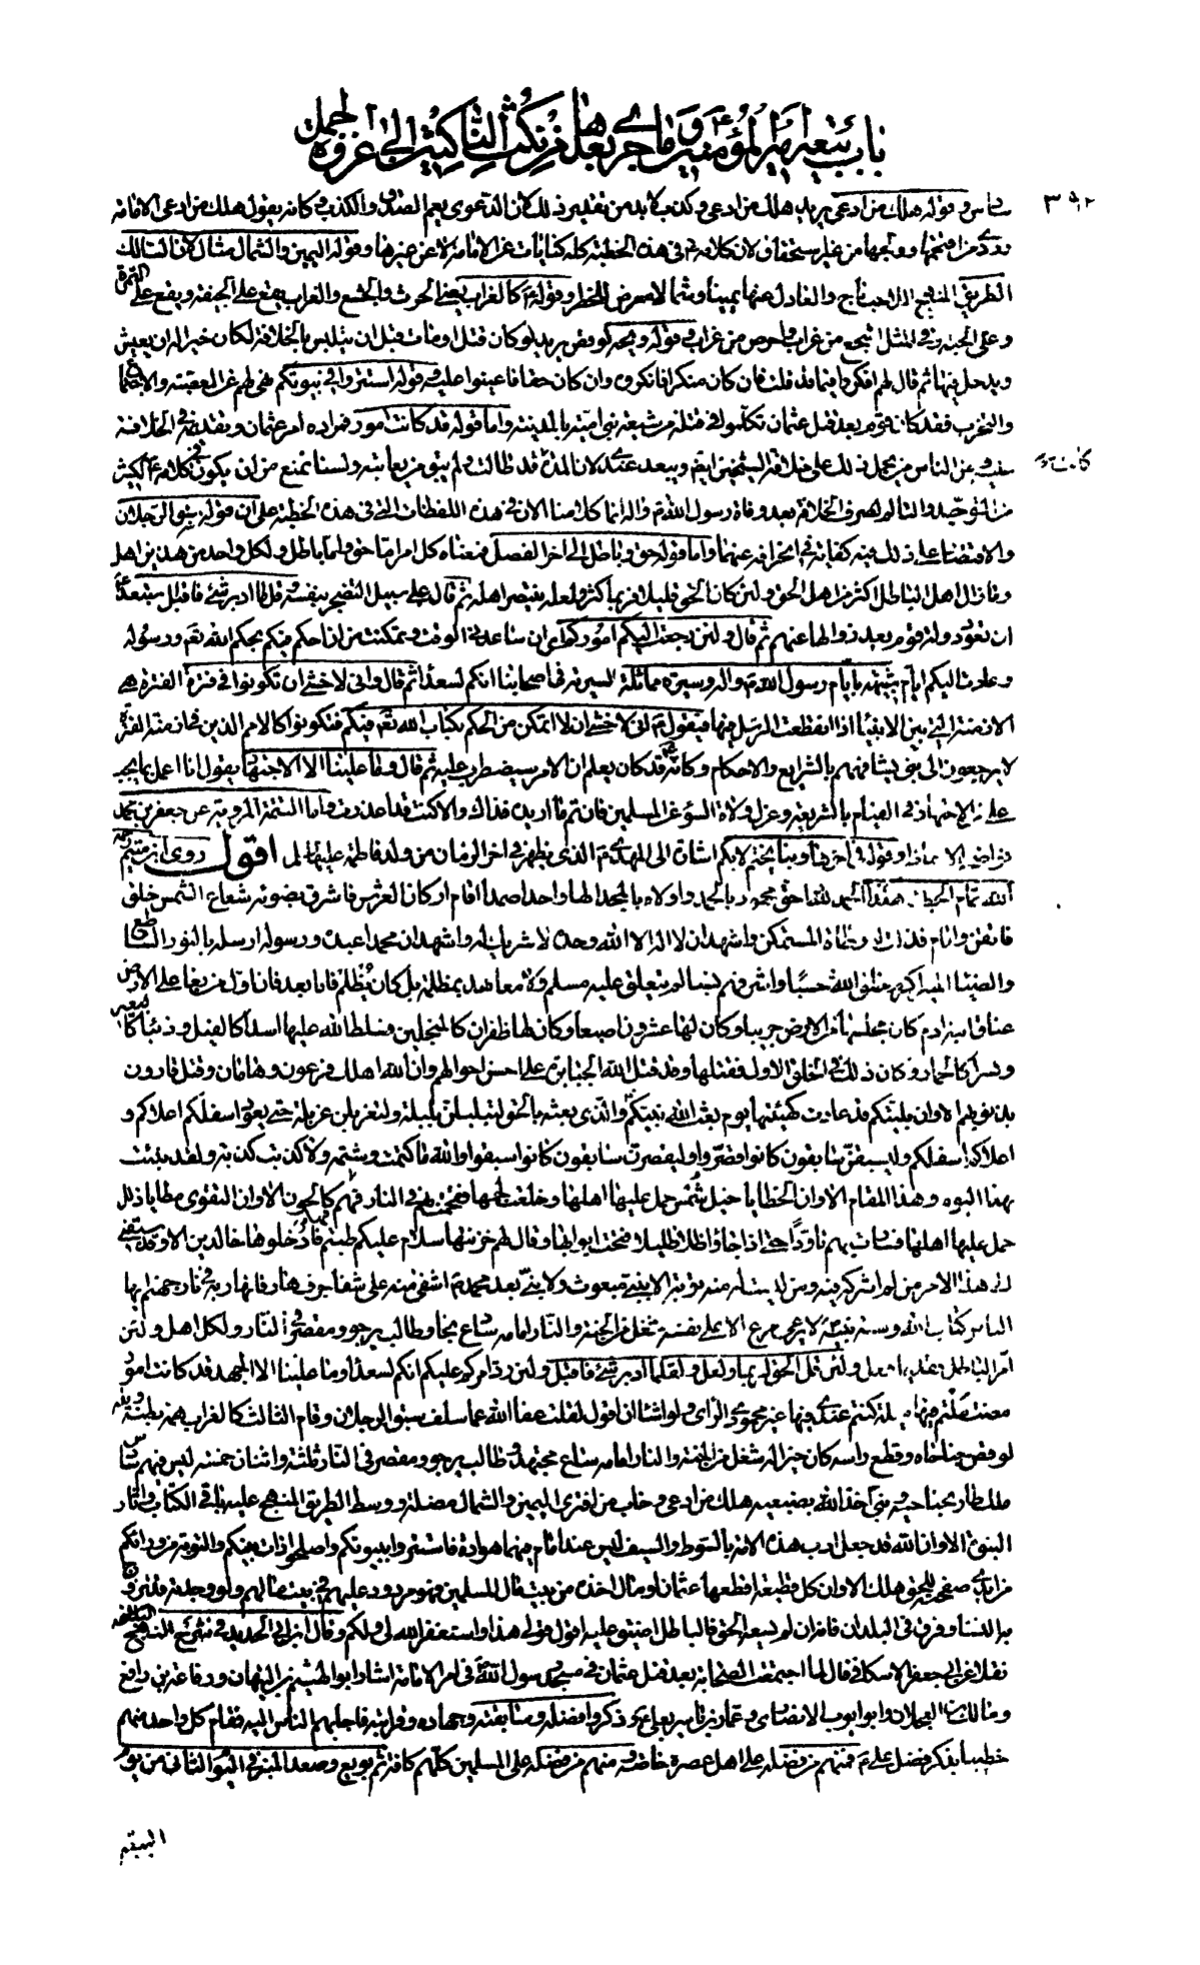 باب بيعة أمير المؤمنين وما جرى بعدها من نكث الناكثين إلى غزوة الجمل
٣٩٢
وقوله هلك من ادعى يريد هلك من ادعى وكذب لا بد من تقدير ذلك لان الدعوى يعم الصدق والكذب وكانه يقول هلك من ادعى الامامة
وردى من اقتحمها وولجها من غير استحقاق لان كلامه ع في هذه الخطبة كله كنايات عن الامامة لا عن غيرها وقوله اليمين والشمال مثال لان السالك
الطريق المنهج اللاحب ناج والعادل عنها يمينا وشمالا معرض للخطر وقوله ع كالغراب يعني الحرص والجشع والغراب يقع على الجيفة ويقع على التمرة
وعلى الحبة وفي المثل اجشع من غراب واحرص من غراب وقوله ويحه لو قص يريد لو كان قتل او مات قبل ان يتلبس بالخلافة لكان خيرا له من ان يعيش
ويدخل فيها ثم قال لهم افكروا فيما قد قلت فان كان منكرا فانكروه وان كان حقا فاعينوا عليه وقوله استتروا في بيوتكم نهي لهم عن العصبية والاجتماع
والتحزب فقد كان قوم بعد قتل عثمان تكلموا في قتله من شيعة بني امية بالمدينة واما قوله قد كانت امور فمراده امر عثمان وتقديمه في الخلافة
ومن الناس من يحمل ذلك على خلافة الشيخين ايضا ويبعد عندي لان المدة قد طالت ولم يبق من يعاتبه ولسنا نمنع من ان يكون في كلامه ع الكثير
من التوجد والتألم لصرف الخلافة بعد وفاة رسول الله ص واله انما كلامنا الان في هذه اللفظات التي في هذه الخطبة على ان قوله سبق الرجلان
والاقتصار على ذلك فيه كفاية في انحرافه عنهما واما قوله حق وباطل الى اخر الفصل فمعناه كل امر اما حق واما باطل ولكل واحد من هذين اهل
وما زال اهل الباطل اكثر من اهل الحق ولئن كان الحق قليلا فربما كثر ولعله ينتصر اهله ثم قال على سبيل التضجر بنفسه قل ما ادبر شيء فاقبل استبعد ع
ان تعود دولة قوم بعد زوالها عنهم ثم قال ولئن رجعت اليكم اموركم اي ان ساعدني الوقت وتمكنت من ان احكم فيكم بحكم الله تعالى ورسوله
وعادت اليكم ايام شبيهة بايام رسول الله ص واله وسيرة مماثلة لسيرته في اصحابه انكم لسعداء ثم قال واني لاخشى ان تكونوا في فترة الفترة هي
الازمنة التي بين الانبياء اذا انقطعت الرسل فيها فيقول ع اني لاخشى ان لا اتمكن من الحكم بكتاب الله تعالى فيكم فتكونوا كالامم الذين في ازمنة الفترة
لا يرجعون الى نبي يشافههم بالشرايع والاحكام وكانه ع قد كان يعلم ان الامر سيضطرب عليه ثم قال وما علينا الا الاجتهاد يقول انا اعمل بما يجب
علي من الاجتهاد في القيام بالشريعة وعزل ولاة السوء عن المسلمين فان تم ما اريده فذاك والا كنت قد اعذرت واما التتمة المروية عن جعفر بن محمد
فواضحة الالفاظ وقوله في اخرها وبنا يختم لا بكم اشارة الى المهدي ع الذي يظهر في اخر الزمان من ولد فاطمة عليها السلام اقول روى ابن ميثم رحمه
الله تمام الخطبة هكذا الحمد لله احق محمود بالحمد واولاه بالمجد الها واحدا صمدا اقام اركان العرش فاشرق بضوئه شعاع الشمس خلق
فاتقن واقام فذلت له وطاة المستمكن واشهد ان لا اله الا الله وحده لا شريك له واشهد ان محمدا عبده ورسوله ارسله بالنور الساطع
والضياء المنير اكرم خلق الله حسبا واشرفهم نسبا لم يتعلق عليه مسلم ولا معاهد بمظلمة بل كان يظلم فاما بعد فان اول من بغى على الارض
عناق ابنة ادم كان مجلسها من الارض جريبا وكان لها عشرون اصبعا وكان لها ظفران كالمنجلين فسلط الله عليها اسدا كالفيل وذئبا كالبعير
ونسرا كالحمار وكان ذلك في الخلق الاول فقتلها وقد قتل الله الجبابرة على احسن احوالهم وان الله اهلك فرعون وهامان وقتل قارون
بذنوبهم الا وان بليتكم قد عادت كهيئتها يوم بعث الله نبيكم والذي بعثه بالحق لتبلبلن بلبلة ولتغربلن غربلة حتى يعود اسفلكم اعلاكم و
اعلاكم اسفلكم وليسبقن سابقون كانوا قصروا وليقصرن سابقون كانوا سبقوا والله ما كتمت وشمة ولا كذبت كذبة ولقد نبئت
بهذا اليوم وهذا المقام الا وان الخطايا خيل شمس حمل عليها اهلها وخلعت لجمها فتقحمت بهم في النار فهم كالحون الا وان التقوى مطايا ذلل
حمل عليها اهلها فسارت بهم تأودا حتى اذا جاؤا ظلا ظليلا فتحت ابوابها وقال لهم خزنتها سلام عليكم طبتم فادخلوها خالدين الا وقد سبقني
الى هذا الامر من لم اشركه فيه ومن ليست له منه توبة الا بنبي مبعوث ولا نبي بعد محمد ص اشفى منه على شفا جرف هار فانهار به في نار جهنم ايها
الناس كتاب الله وسنة نبيه لا يرعى مرع الا على نفسه شغل من الجنة والنار امامه ساع نجا وطالب يرجو ومقصر في النار ولكل اهل ولئن
امر الباطل فقديما فعل ولئن قل الحق لربما ولعل ولقلما ادبر شيء فاقبل ولئن رد امركم عليكم انكم لسعداء وما علينا الا الجهد قد كانت امور
مضت ملتم فيها ميلة كنتم عندي فيها غير محمودي الراي ولو اشاء ان اقول لقلت عفا الله عما سلف سبق الرجلان وقام الثالث كالغراب همته بطنه ويله
لو قص جناحاه وقطع راسه كان خيرا له شغل من الجنة والنار امامه ساع مجتهد وطالب يرجو ومقصر في النار ثلثة واثنان خمسة ليس فيهم سادس
ملك طار بجناحيه ونبي اخذ الله بضبعيه هلك من ادعى وخاب من افترى اليمين والشمال مضلة ووسط الطريق المنهج عليه باقي الكتاب واثار
النبوة الا وان الله قد جعل ادب هذه الامة بالسوط والسيف ليس عند امام فيهما هوادة فاستتروا ببيوتكم واصلحوا ذات بينكم والتوبة من ورائكم
من ابدى صفحته للحق هلك الا وان كل قطيعة اقطعها عثمان او مال اخذه من بيت مال المسلمين فهو مردود عليهم في بيت مالهم ولو وجدته قد تزوج
به النساء وفرق في البلدان فانه ان لم يسعه الحق فالباطل اضيق عليه اقول قولي هذا واستغفر الله لي ولكم وقال ابن ابي الحديد في شرح النهج
نقلا عن ابي جعفر الاسكافي قال لما اجتمعت الصحابة بعد قتل عثمان في مسجد رسول الله ص في امر الامامة اشار ابو الهيثم بن التيهان ورفاعة بن رافع
ومالك بن العجلان وابو ايوب الانصاري وعمار بن ياسر بعلي ع وذكروا فضله وسابقته وجهاده وقرابته فاجابهم الناس اليه فقام كل واحد منهم
خطيبا يذكر فضل علي ع فمنهم من فضله على اهل عصره خاصة ومنهم من فضله على المسلمين كلهم كافة ثم بويع وصعد المنبر في اليوم الثاني من يوم
البيعة